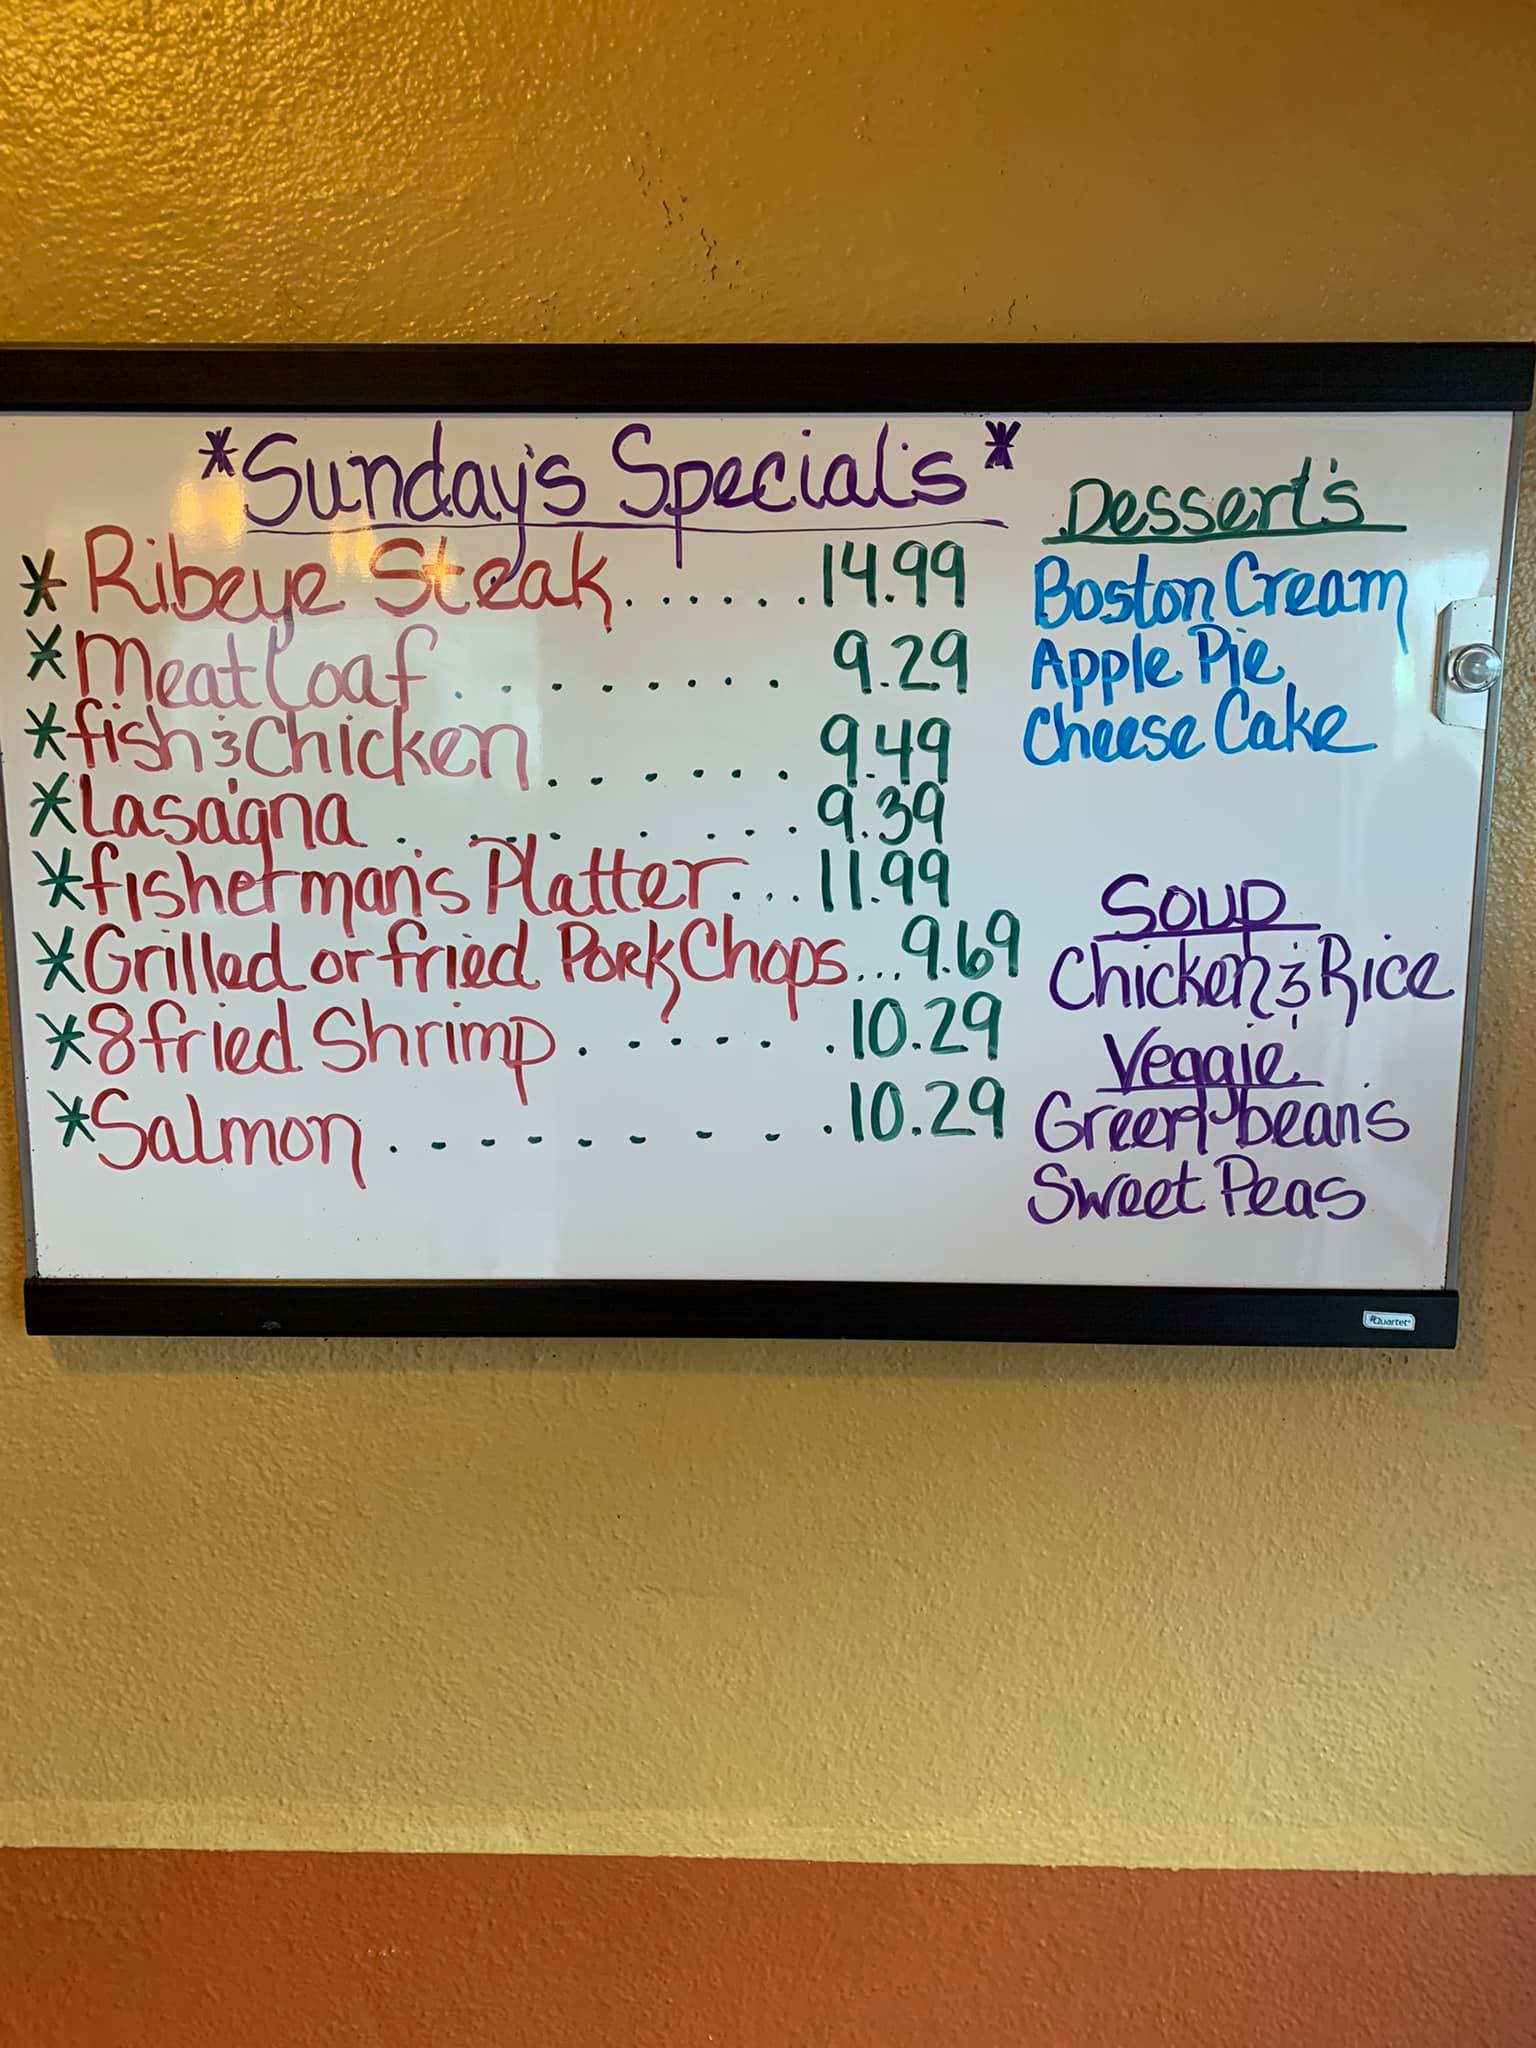 *Sunday's Special's*
* Ribeye Steak......14.99
* Meatloaf........ 9.29
* fish & Chicken....... 9.49
* Lasagna........9.39
* fisherman's Platter...11.99
* Grilled or fried Pork Chops...9.69
* 8 fried Shrimp......10.29
* Salmon........10.29
Dessert's
Boston Cream
Apple Pie
Cheese Cake
Soup
Chicken & Rice
Veggie
Green beans
Sweet Peas
Quartet